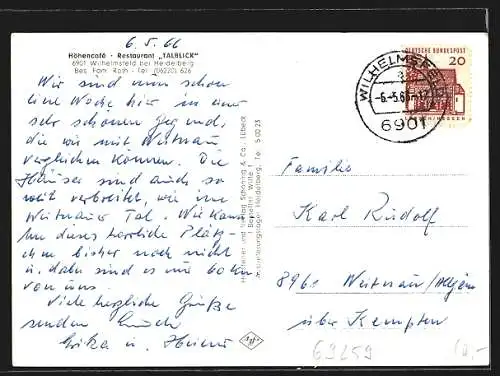 6.5.66
Höhencafé · Restaurant „TALBLICK"
6901 Wilhelmsfeld bei Heidelberg
Bes. Fam. Roth - Tel. (06220) 626
Wir sind nun schon
eine Woche hier in einer
sehr schönen Gegend,
die wir mit Weitnau
vergleichen können. Die
Häuser sind auch so
weit verbreitet, wie im
Weitnauer Tal. Wir kann-
ten dieses herrliche Plätz-
chen bisher noch nicht
u. dabei sind es nur 60 km
von uns.
Viele herzliche Grüße
senden Euch
Erika u. Heiner
Hersteller und Verlag Schöning & Co., Lübeck
Auslieferungslager Heidelberg, Tel. 5 00 23
DEUTSCHE BUNDESPOST
20
WILHELMSFELD
-6.5.66
6901
Familie
Karl Rudolf
8961 Weitnau/Allgäu
über Kempten
69259
10,-